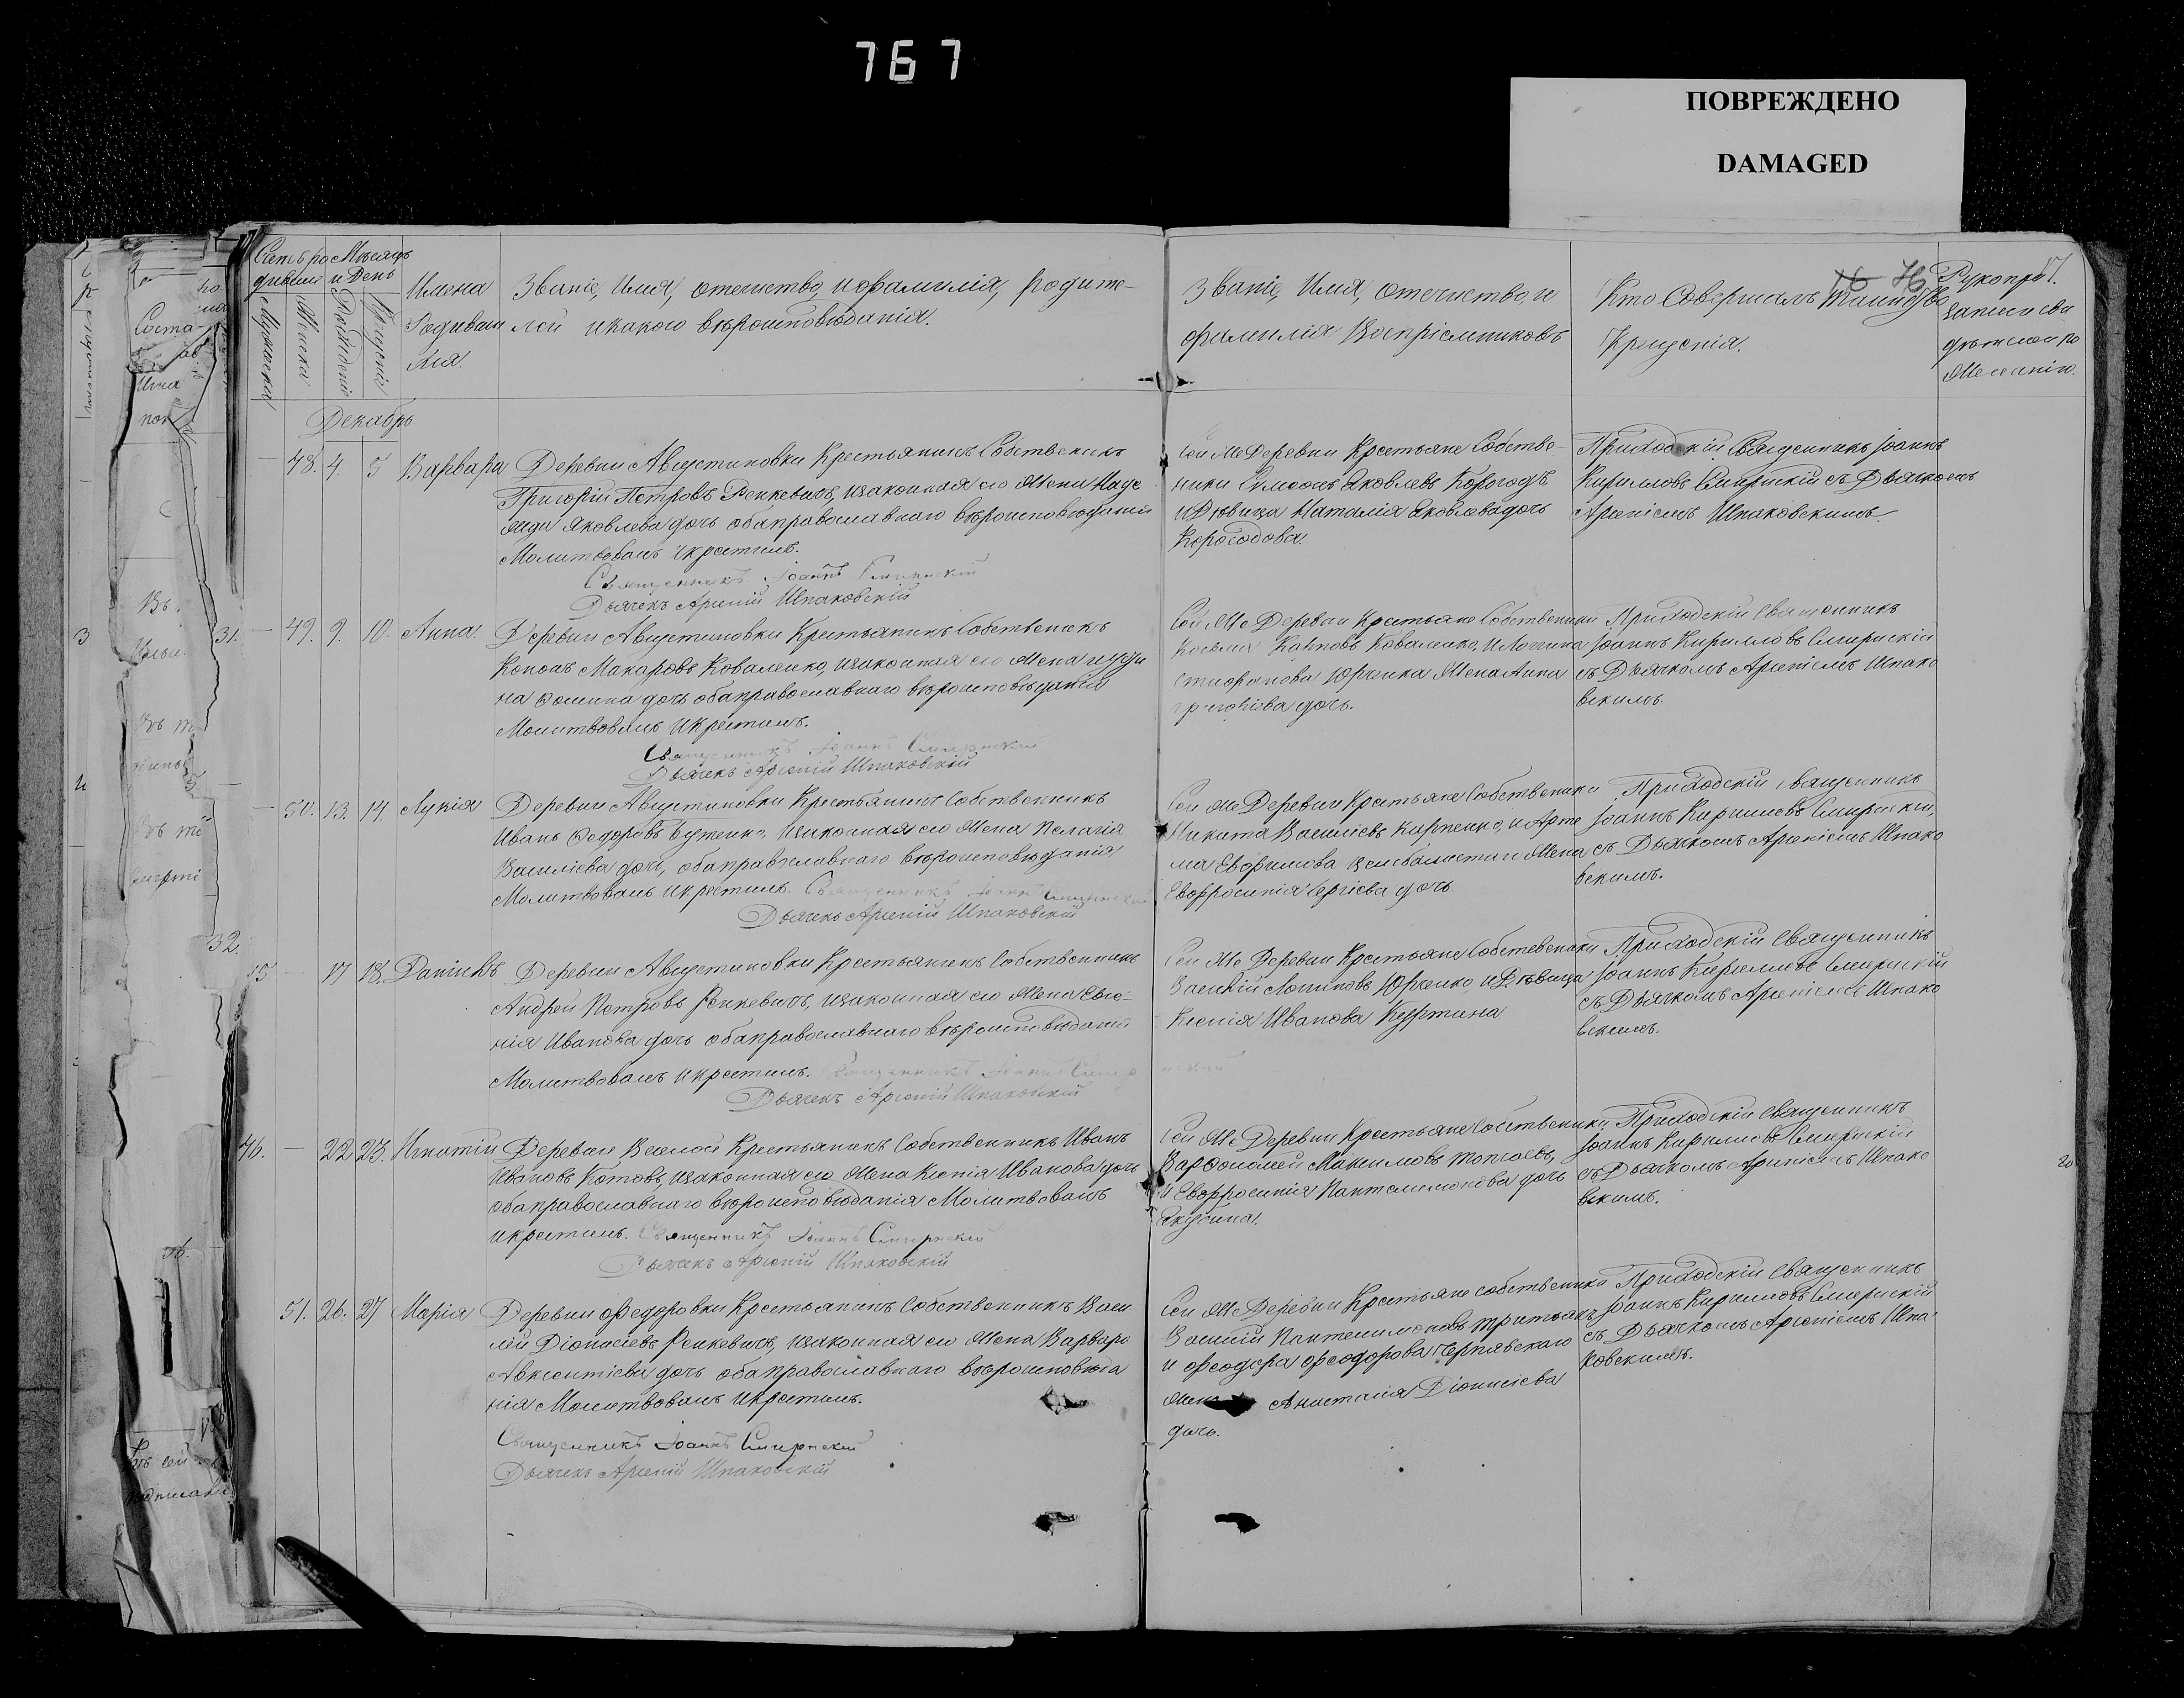 767
ПОВРЕЖДЕНО
DAMAGED
Счетъ ро Мѣсяцъ
дившие и День
Мужеска
Женска
Рожденія
Крещенія
Имена
Родивши
хся.
Званіе, Имя, отечество, и фамилія, родите-
лей и какого вѣроисповѣданія.
Званіе, Имя, отечество и
фамилія Воспріемниковъ
Кто Совершалъ таинство
Крещенія.
Рукопри
записи сви
дѣтелей по
желанію.
Декабрь
48. 4 5 Варвара
Деревни Августиновки Крестьянинъ Собственникъ
Григорій Петровъ Ренкевичъ, изаконная его жена Наде
жда Яковлева дочь оба православнаго вѣроисповѣданія
Молитвовалъ и крестилъ.
Священникъ Іоаннъ Смирнскій
Дьячекъ Арсеній Шпаковскій
Сей же Деревни Крестьяне Собстве-
ники Симеонъ Яковлевъ Корогодъ
и Дѣвица Наталія Яковлева дочь
Корогодова.
Приходскій Священникъ Іоаннъ
Кирилловъ Смирнскій съ Дьячкомъ
Арсеніемъ Шпаковскимъ.
31. 49. 9. 10. Анна.
Деревни Августиновки Крестьянинъ Собственникъ
Кононъ Макаровъ Коваленко, изаконная его жена
на Фомина дочь оба православнаго вѣроисповѣданія
Молитвовалъ и крестилъ.
Священникъ Іоаннъ Смирнскій
Дьячекъ Арсеній Шпаковскій
Сей же Деревни Крестьяне Собственники
Косьма Карповъ Коваленко, и Логгина
Стифанова Юрченка жена Анна
Григорієва дочь.
Приходскій Священникъ
Іоаннъ Кирилловъ Смирнскій
съ Дьячкомъ Арсеніемъ Шпако
вскимъ.
50. 13. 14. Лукія
Деревни Августиновки Крестьянинъ Собственникъ
Иванъ Ѳедоровъ Бутенко, изаконная его жена Пелагія
Василієва дочь, оба православнаго вѣроисповѣданія
Молитвовалъ и крестилъ. Священникъ Іоаннъ Смирнскій
Дьячекъ Арсеній Шпаковскій
Сей же Деревни Крестьяне Собственики
Никита Василієвъ Карпенко, и Арте
ма Евфимова жена
Евфросинія Сергієва дочь
Приходскій Священникъ
Іоаннъ Кирилловъ Смирнскій,
съ Дьячкомъ Арсеніемъ Шпако
вскимъ.
32.
17 18. Даніилъ
Деревни Августиновки Крестьянинъ Собственникъ
Андрей Петровъ Ренкевичъ, изаконная его жена Евге-
нія Иванова дочь оба православнаго вѣроисповѣданія
Молитвовалъ и крестилъ. Священникъ Іоаннъ Смирнскій
Дьячекъ Арсеній Шпаковскій
Сей же Деревни Крестьяне Собственики
Василій Логиновъ Юрченко, и Дѣвица
Ксенія Иванова Курпина
Приходскій Священникъ
Іоаннъ Кирилловъ Смирнскій
съ Дьячкомъ Арсеніемъ Шпако
вскимъ.
46. — 22 23. Игнатій
Деревни Веселой Крестьянинъ Собственникъ Иванъ
Ивановъ Котовъ, изаконная его жена Ксенія Иванова дочь
оба православнаго вѣроисповѣданія Молитвовалъ
и крестилъ. Священникъ Іоаннъ Смирнскій
Дьячекъ Арсеній Шпаковскій
Сей же Деревни Крестьяне Собственники
Варфоломей Максимовъ
и Евфросинія Пантелимонова дочь
Якубина.
Приходскій Священникъ
Іоаннъ Кирилловъ Смирнскій
съ Дьячкомъ Арсеніемъ Шпако
вскимъ.
51. 26. 27 Марія
Деревни Федоровки Крестьянинъ Собственникъ Васи
лій Діонисієвъ Ренкевичъ, изаконная его жена Варвара
Авксентієва дочь оба православнаго вѣроисповѣда
нія Молитвовалъ и крестилъ.
Священникъ Іоаннъ Смирнскій
Дьячекъ Арсеній Шпаковскій
Сей же Деревни Крестьяне собственники
Василій Пантелимоновъ
и Феодора Феодорова Чернявскаго
жена Анастасія Діонисієва
дочь.
Приходскій Священникъ
Іоаннъ Кирилловъ Смирнскій
съ Дьячкомъ Арсеніемъ Шпа-
ковскимъ.